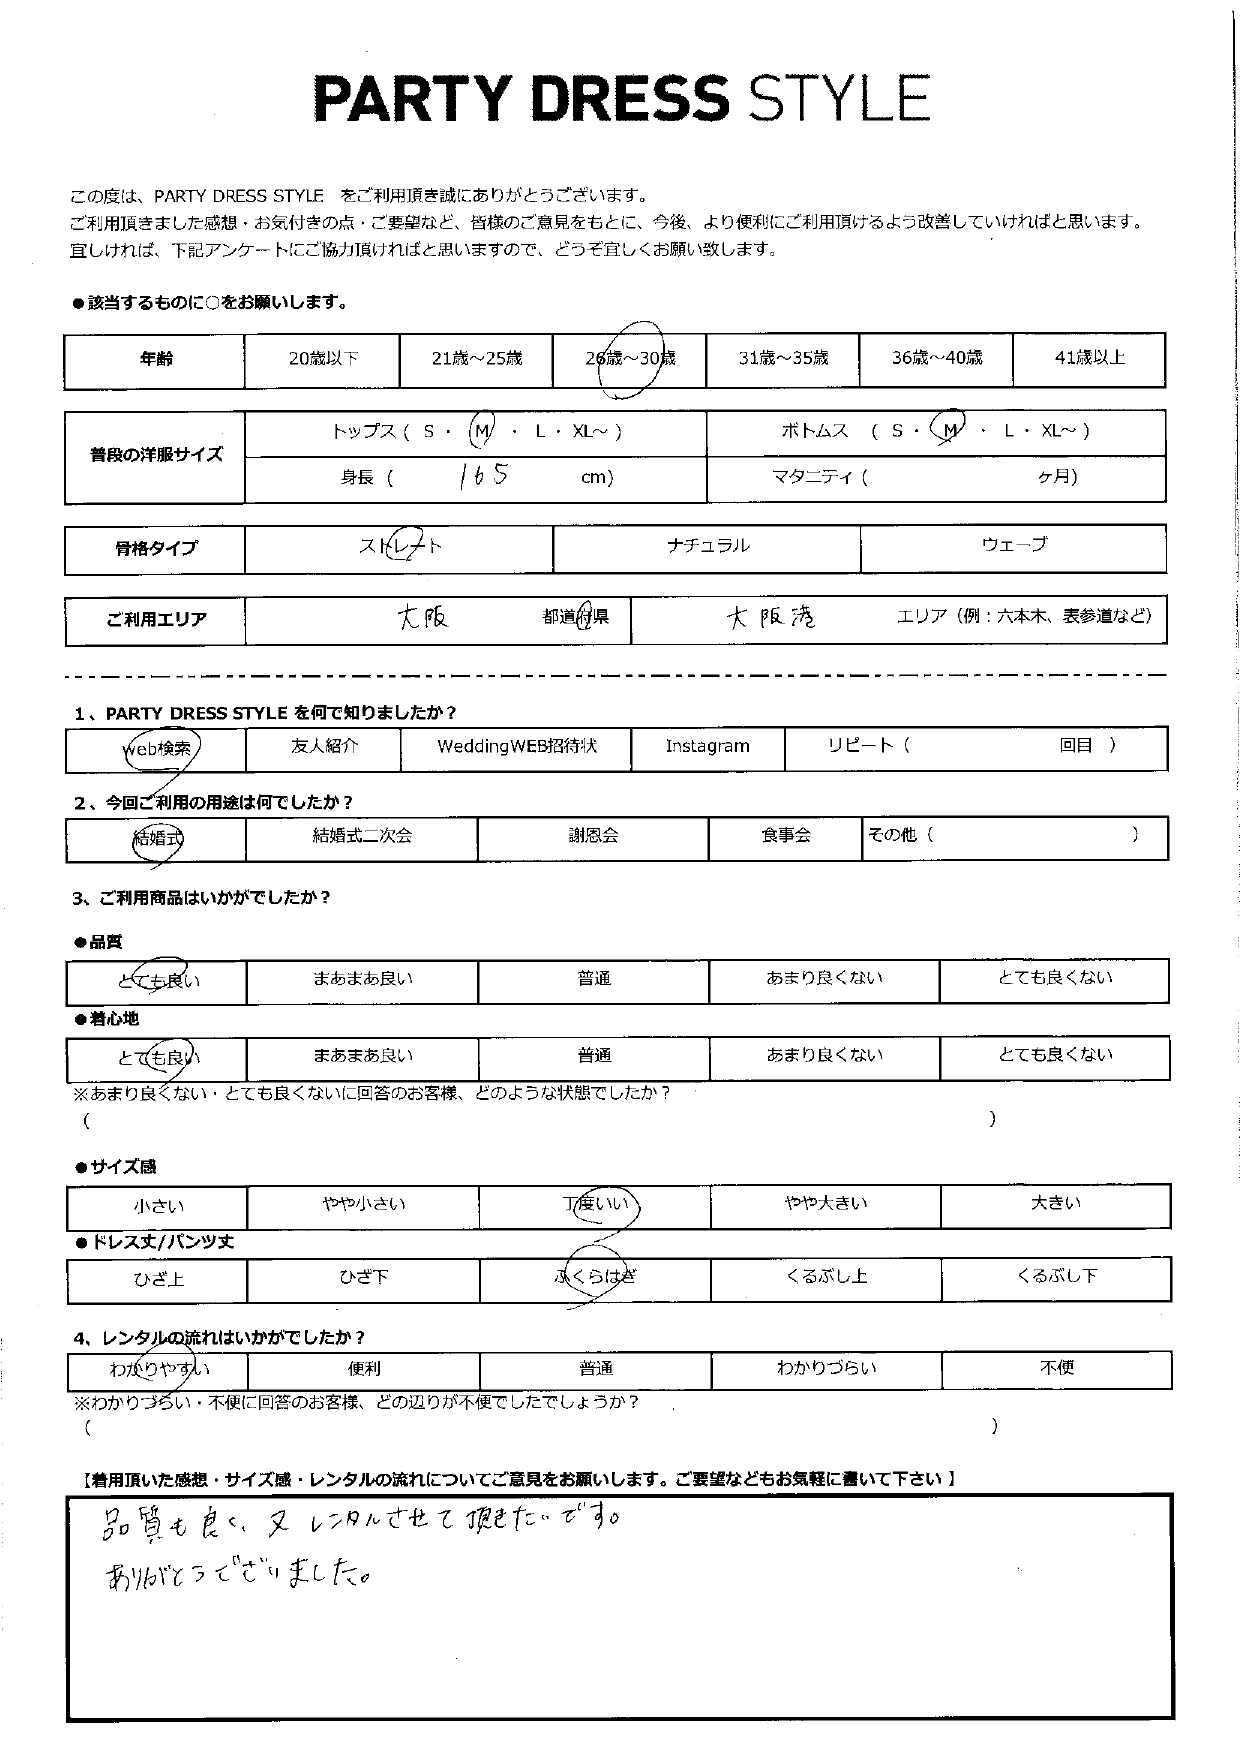 PARTY DRESS STYLE
この度は、PARTY DRESS STYLE　をご利用頂き誠にありがとうございます。
ご利用頂きました感想・お気付きの点・ご要望など、皆様のご意見をもとに、今後、より便利にご利用頂けるよう改善していければと思います。
宜しければ、下記アンケートにご協力頂ければと思いますので、どうぞ宜しくお願い致します。
●該当するものに○をお願いします。
年齢 20歳以下 21歳～25歳 26歳～30歳 31歳～35歳 36歳～40歳 41歳以上
普段の洋服サイズ
トップス ( S ・ M ・ L ・ XL～ ) ボトムス ( S ・ M ・ L ・ XL～ )
身長 ( 165 cm) マタニティ ( ヶ月)
骨格タイプ ストレート ナチュラル ウェーブ
ご利用エリア 大阪 都道府県 大阪港 エリア（例：六本木、表参道など）
1、PARTY DRESS STYLE を何で知りましたか？
web検索 友人紹介 WeddingWEB招待状 Instagram リピート ( 回目 )
2、今回ご利用の用途は何でしたか？
結婚式 結婚式二次会 謝恩会 食事会 その他 ( )
3、ご利用商品はいかがでしたか？
●品質
とても良い まあまあ良い 普通 あまり良くない とても良くない
●着心地
とても良い まあまあ良い 普通 あまり良くない とても良くない
※あまり良くない・とても良くないに回答のお客様、どのような状態でしたか？
( )
●サイズ感
小さい やや小さい 丁度いい やや大きい 大きい
●ドレス丈/パンツ丈
ひざ上 ひざ下 ふくらはぎ くるぶし上 くるぶし下
4、レンタルの流れはいかがでしたか？
わかりやすい 便利 普通 わかりづらい 不便
※わかりづらい・不便に回答のお客様、どの辺りが不便でしたでしょうか？
( )
【着用頂いた感想・サイズ感・レンタルの流れについてご意見をお願いします。ご要望などもお気軽に書いて下さい 】
品質も良く、又レンタルさせて頂きたいです。
ありがとうございました。